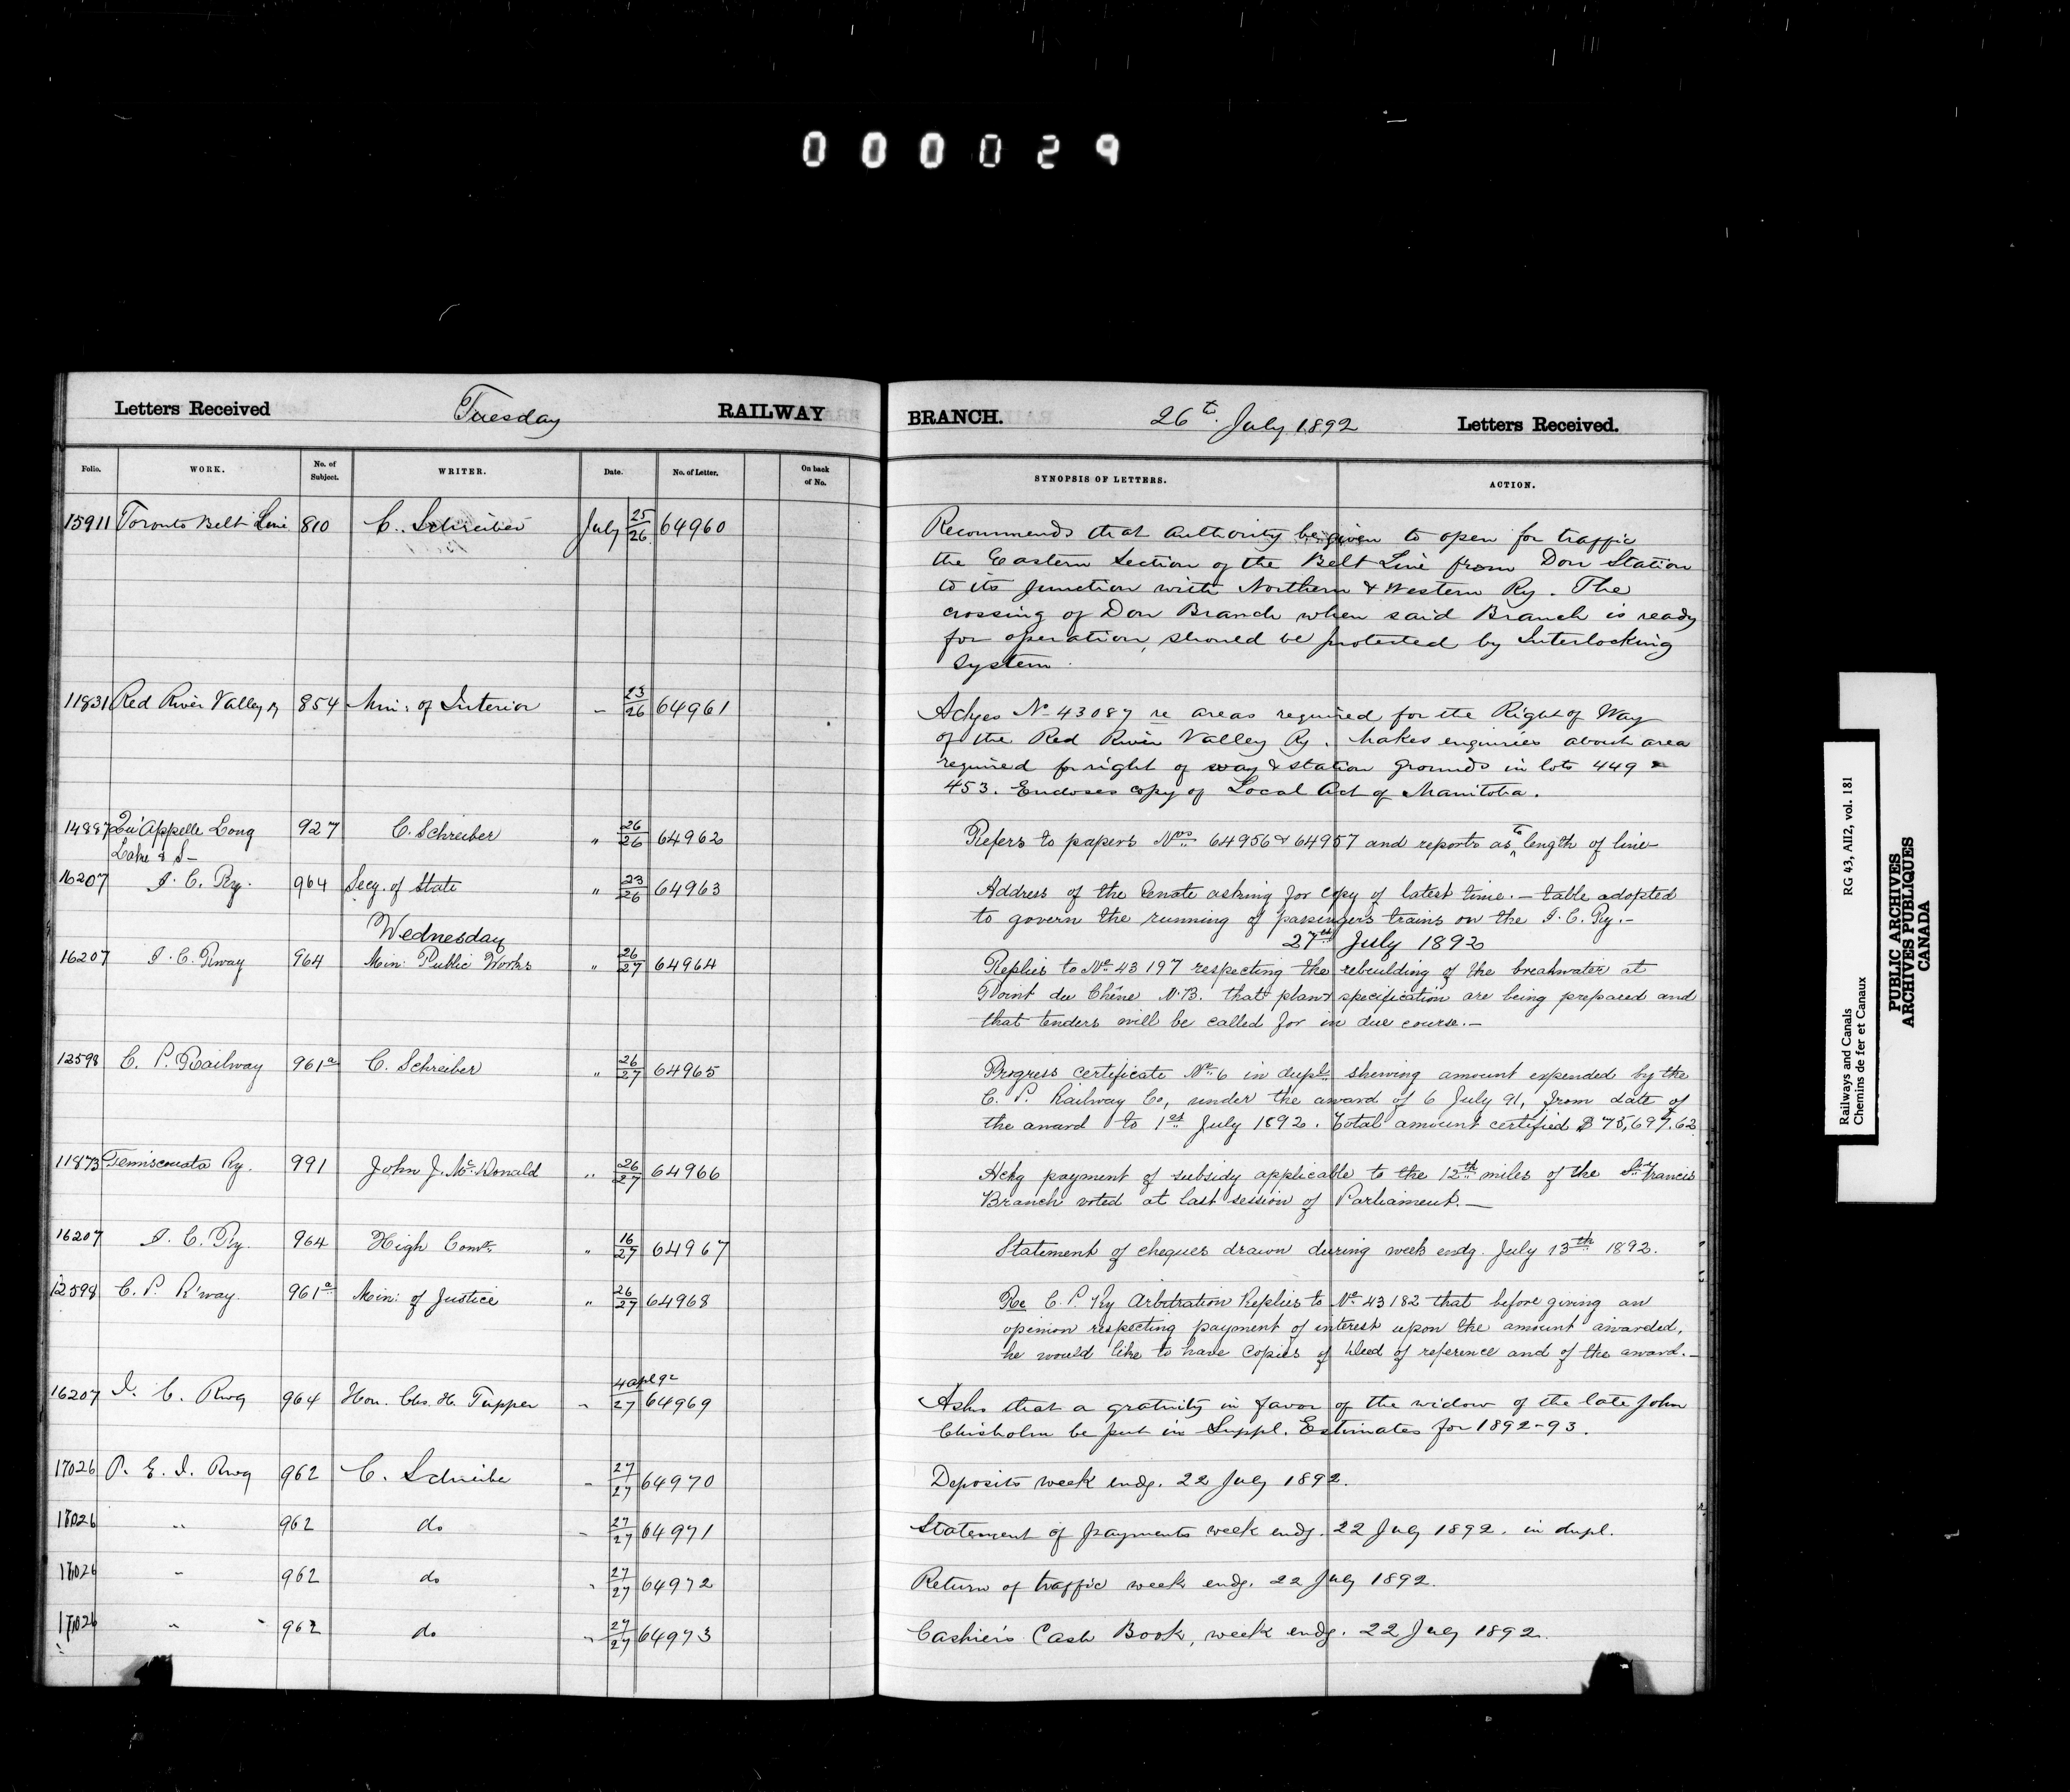 000029
Letters Received Tuesday RAILWAY BRANCH. 26th July 1892 Letters Received.
Folio. WORK. No. of Subject. WRITER. Date. No. of Letter. On back of No. SYNOPSIS OF LETTERS. ACTION.
15911 Toronto Belt Line 810 C. Schreiber July 25/26 64960 Recommends that authority be given to open for traffic
the Eastern Section of the Belt Line from Don Station
to its Junction with Northern & Western Ry. The
crossing of Don Branch when said Branch is ready
for operation, should be protected by Interlocking
System.
11831 Red River Valley Ry 854 Min: of Interior " 23/26 64961 Ackges No 43087 re areas required for the Right of Way
of the Red River Valley Ry. Makes enquiries about area
required for right of way & station grounds in lots 449 &
453. Encloses copy of Local Act of Manitoba.
14887 Qu'Appelle Long 927 C. Schreiber " 26/26 64962 Refers to papers Nos 64956 & 64957 and reports as to length of line
Lake & S—
16207 I. C. Ry. 964 Secy. of State " 23/26 64963 Address of the Senate asking for copy of latest time.— table adopted
to govern the running of passengers trains on the I. C. Ry.—
Wednesday 27th July 1892
16207 I. C. Rway 964 Min: Public Works " 26/27 64964 Replies to No 43197 respecting the rebuilding of the breakwater at
Point du Chêne N.B. that plan & specification are being prepared and
that tenders will be called for in due course.—
12598 C. P. Railway 961a C. Schreiber " 26/27 64965 Progress Certificate No 6 in dupl. shewing amount expended by the
C. P. Railway Co, under the award of 6 July 91, from date of
the award to 1st July 1892. Total amount certified $75,697.62
11873 Temiscouata Ry. 991 John J. McDonald " 26/27 64966 Ackg payment of subsidy applicable to the 12th miles of the St Francis
Branch voted at last session of Parliament.—
16207 I. C. Ry. 964 High Comr. " 16/27 64967 Statement of cheques drawn during week endg. July 13th 1892.
12598 C. P. R'way. 961a Min: of Justice " 26/27 64968 Re C. P. Ry Arbitration Replies to No 43182 that before giving an
opinion respecting payment of interest upon the amount awarded,
he would like to have copies of Deed of reference and of the award.—
16207 I. C. Rwy 964 Hon. Chs. H. Tupper " 4 apl 92/27 64969 Asks that a gratuity in favor of the widow of the late John
Chisholm be put in Suppl. Estimates for 1892-93.
17026 P. E. I. Rwy 962 C. Schreiber " 27/27 64970 Deposits week endg. 22 July 1892.
17026 " 962 do " 27/27 64971 Statement of payments week endg. 22 July 1892. in dupl.
17026 " 962 do " 27/27 64972 Return of traffic week endg. 22 July 1892.
17026 " " 962 do " 27/27 64973 Cashier's Cash Book, week endg. 22 July 1892.
Railways and Canals RG 43, AIII2, vol. 181
Chemins de fer et Canaux
PUBLIC ARCHIVES
ARCHIVES PUBLIQUES
CANADA